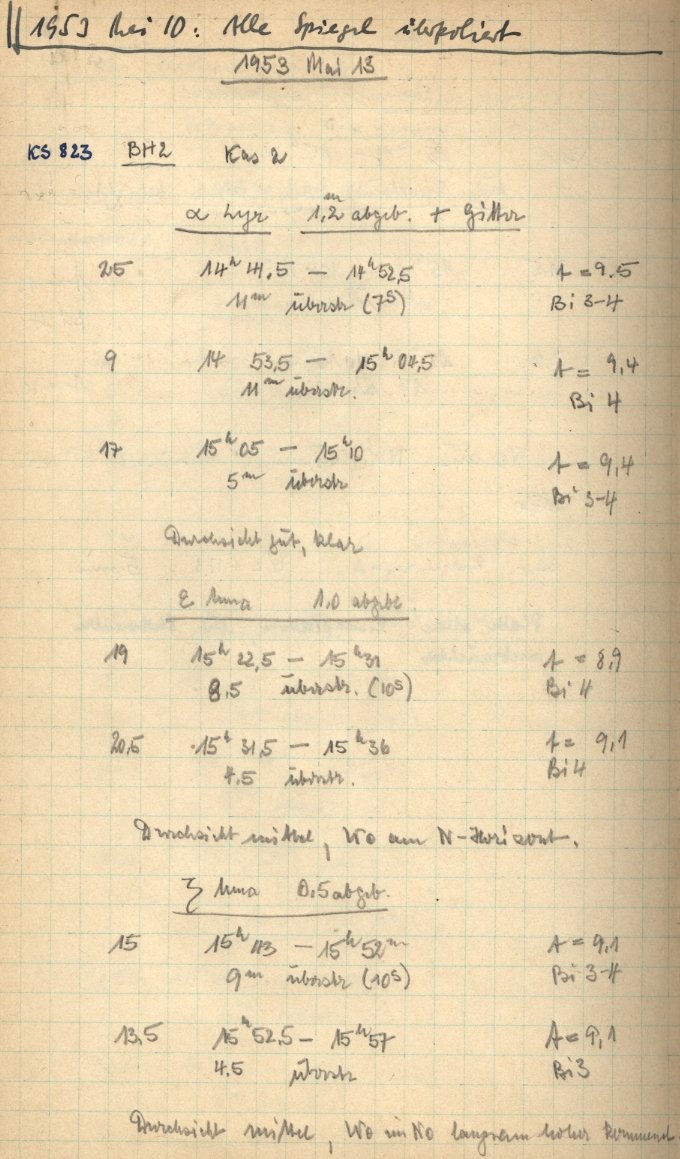 1953 Mai 10: Alle Spiegel überpoliert
1953 Mai 13
KS 823 BH2 Kas 2
α Lyr 1,2ᵐ abgeb. + Gitter
25 14ʰ 41,5 — 14ʰ 52,5 t = 9.5
11ᵐ überstr (7ˢ) Bi 3-4
9 14 53,5 — 15ʰ 04,5 t = 9,4
11ᵐ überstr. Bi 4
17 15ʰ 05 — 15ʰ 10 t = 9,4
5ᵐ überstr Bi 3-4
Durchsicht gut, klar
ε Uma 1,0 abgebl.
19 15ʰ 22,5 — 15ʰ 31 t = 8,9
8,5 überstr. (10ˢ) Bi 4
20,5 15ʰ 31,5 — 15ʰ 36 t = 9,1
4.5 überstr. Bi 4
Durchsicht mittel, Wo am N-Horizont.
ζ Uma 0,5 abgeb.
15 15ʰ 43 — 15ʰ 52ᵐ t = 9,1
9ᵐ überstr (10ˢ) Bi 3-4
13,5 15ʰ 52,5 — 15ʰ 57 t = 9,1
4.5 überstr Bi 3
Durchsicht mittel, Wo im No langsam höher kommend.